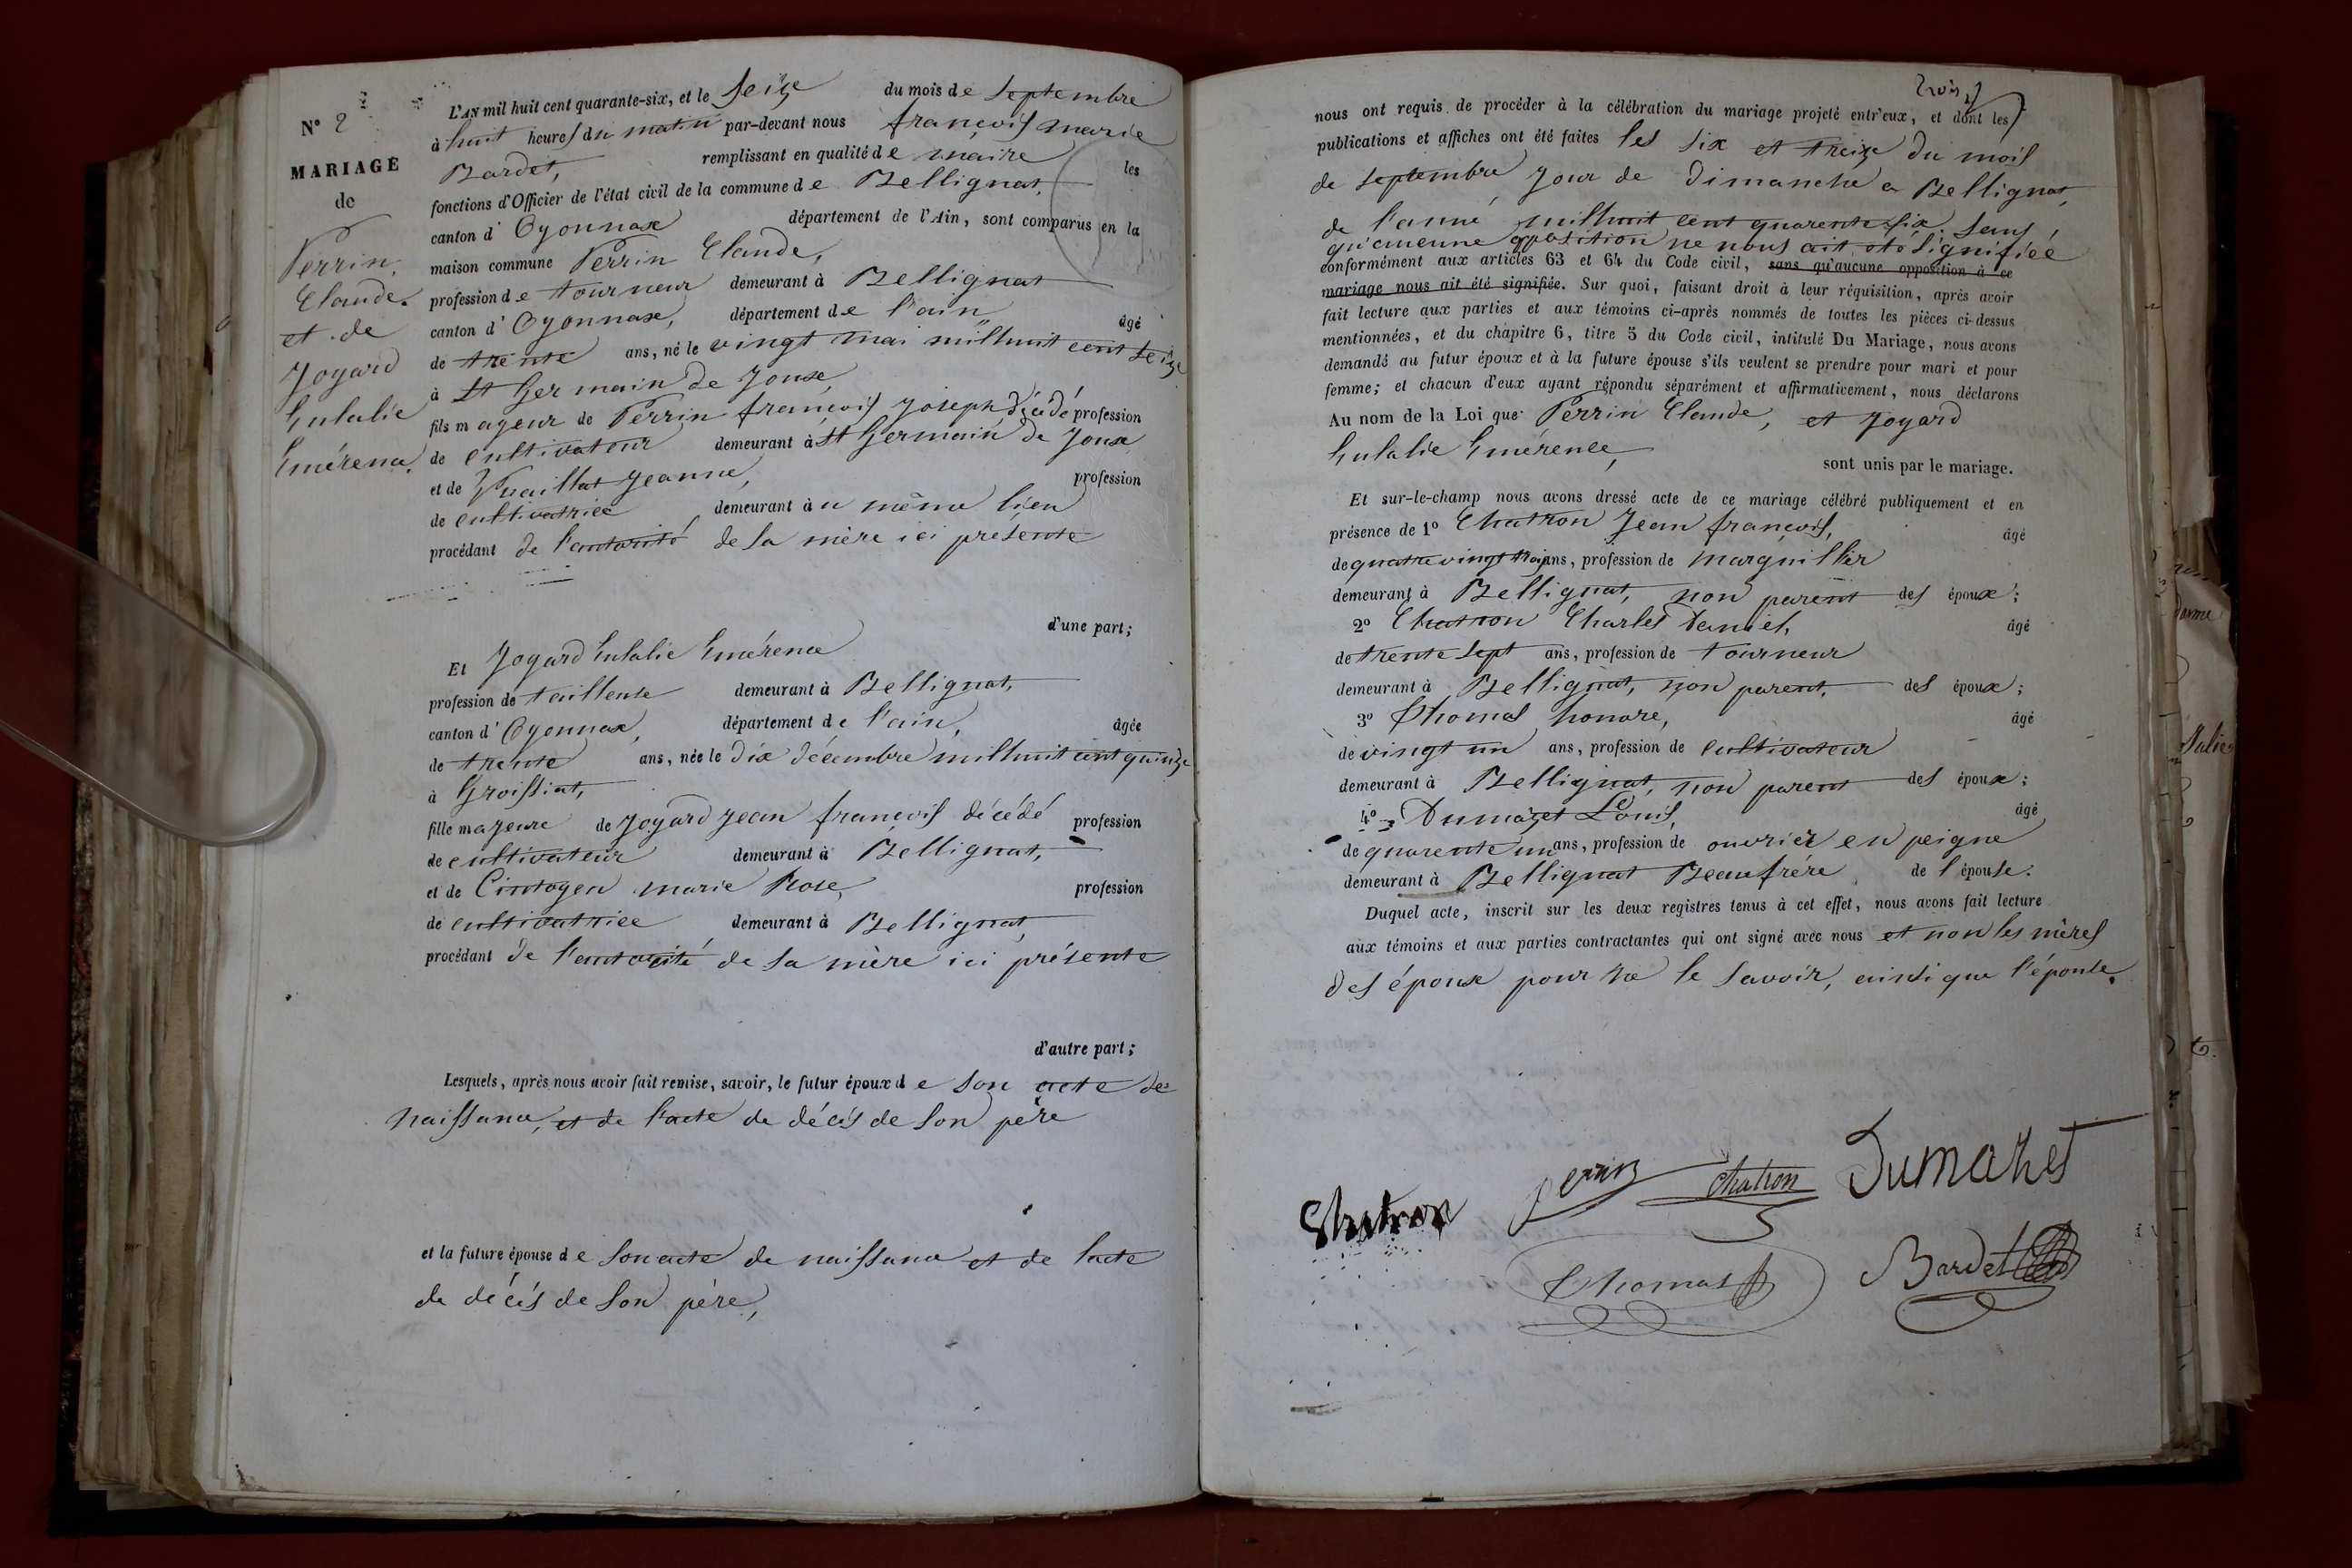 N° 2
MARIAGE
de
Perrin
Claude.
et de
Joyard
Eulalie
Emérence.
L'AN mil huit cent quarante-six, et le Seize du mois de Septembre
à huit heures du matin par-devant nous françois marie
Bardet, remplissant en qualité de maire les
fonctions d'Officier de l'état civil de la commune de Bellignat,
canton d'Oyonnax département de l'Ain, sont comparus en la
maison commune Perrin Claude,
profession de tourneur demeurant à Bellignat
canton d'Oyonnax, département de l'ain âgé
de trente ans, né le vingt mai milhuit cent Seize
à St Germain de Joux,
fils mageur de Perrin françois Joseph décédé profession
de cultivateur demeurant à St Germain de Joux
et de Vuaillat Jeanne, profession
de cultivatrice demeurant au même lieu
procédant de l'autorité de sa mère ici présente
d'une part;
Et Joyard Eulalie Emérence
profession de tailleuse demeurant à Bellignat,
canton d'Oyonnax, département de l'ain, âgée
de trente ans, née le dix décembre milhuit cent quinze
à Groissiat,
fille majeure de Joyard Jean françois décédé profession
de cultivateur demeurant à Bellignat,
et de Cintoyen marie Rose, profession
de cultivatrice demeurant à Bellignat,
procédant de l'autorité de sa mère ici présente
d'autre part;
Lesquels, après nous avoir fait remise, savoir, le futur époux de son acte de
naissance, et de l'acte de décès de son père
et la future épouse de son acte de naissance et de l'acte
de décès de son père,
trois
nous ont requis de procéder à la célébration du mariage projeté entr'eux, et dont les
publications et affiches ont été faites les six et treize du mois
de septembre jour de dimanche a Bellignat,
de l'anné milhuit cent quarente six. Sans
qu'aucunne opposition ne nous ait été Signifiéé
conformément aux articles 63 et 64 du Code civil, sans qu'aucune opposition à ce
mariage nous ait été signifiée. Sur quoi, faisant droit à leur réquisition, après avoir
fait lecture aux parties et aux témoins ci-après nommés de toutes les pièces ci-dessus
mentionnées, et du chapitre 6, titre 5 du Code civil, intitulé Du Mariage, nous avons
demandé au futur époux et à la future épouse s'ils veulent se prendre pour mari et pour
femme; et chacun d'eux ayant répondu séparément et affirmativement, nous déclarons
Au nom de la Loi que Perrin Claude, et Joyard
Eulalie Emérence, sont unis par le mariage.
Et sur-le-champ nous avons dressé acte de ce mariage célébré publiquement et en
présence de 1° Chatron Jean françois, âgé
de quatre vingt trois ans, profession de marguillier
demeurant à Bellignat, non parent des époux;
2° Chatron Charles Daniel, âgé
de trente Sept ans, profession de tourneur
demeurant à Bellignat, non parent, des époux;
3° Thomas honore, âgé
de vingt un ans, profession de cultivateur
demeurant à Bellignat, non parent des époux;
4° Dumazet Louis, âgé
de quarente un ans, profession de ouvrier en peigne
demeurant à Bellignat Beaufrére de l'épouse.
Duquel acte, inscrit sur les deux registres tenus à cet effet, nous avons fait lecture
aux témoins et aux parties contractantes qui ont signé avec nous et non les mères
des époux pour ne le savoir, ainsi que l'épouse.
Chatron perrin chatron Dumazet
Thomas Bardet